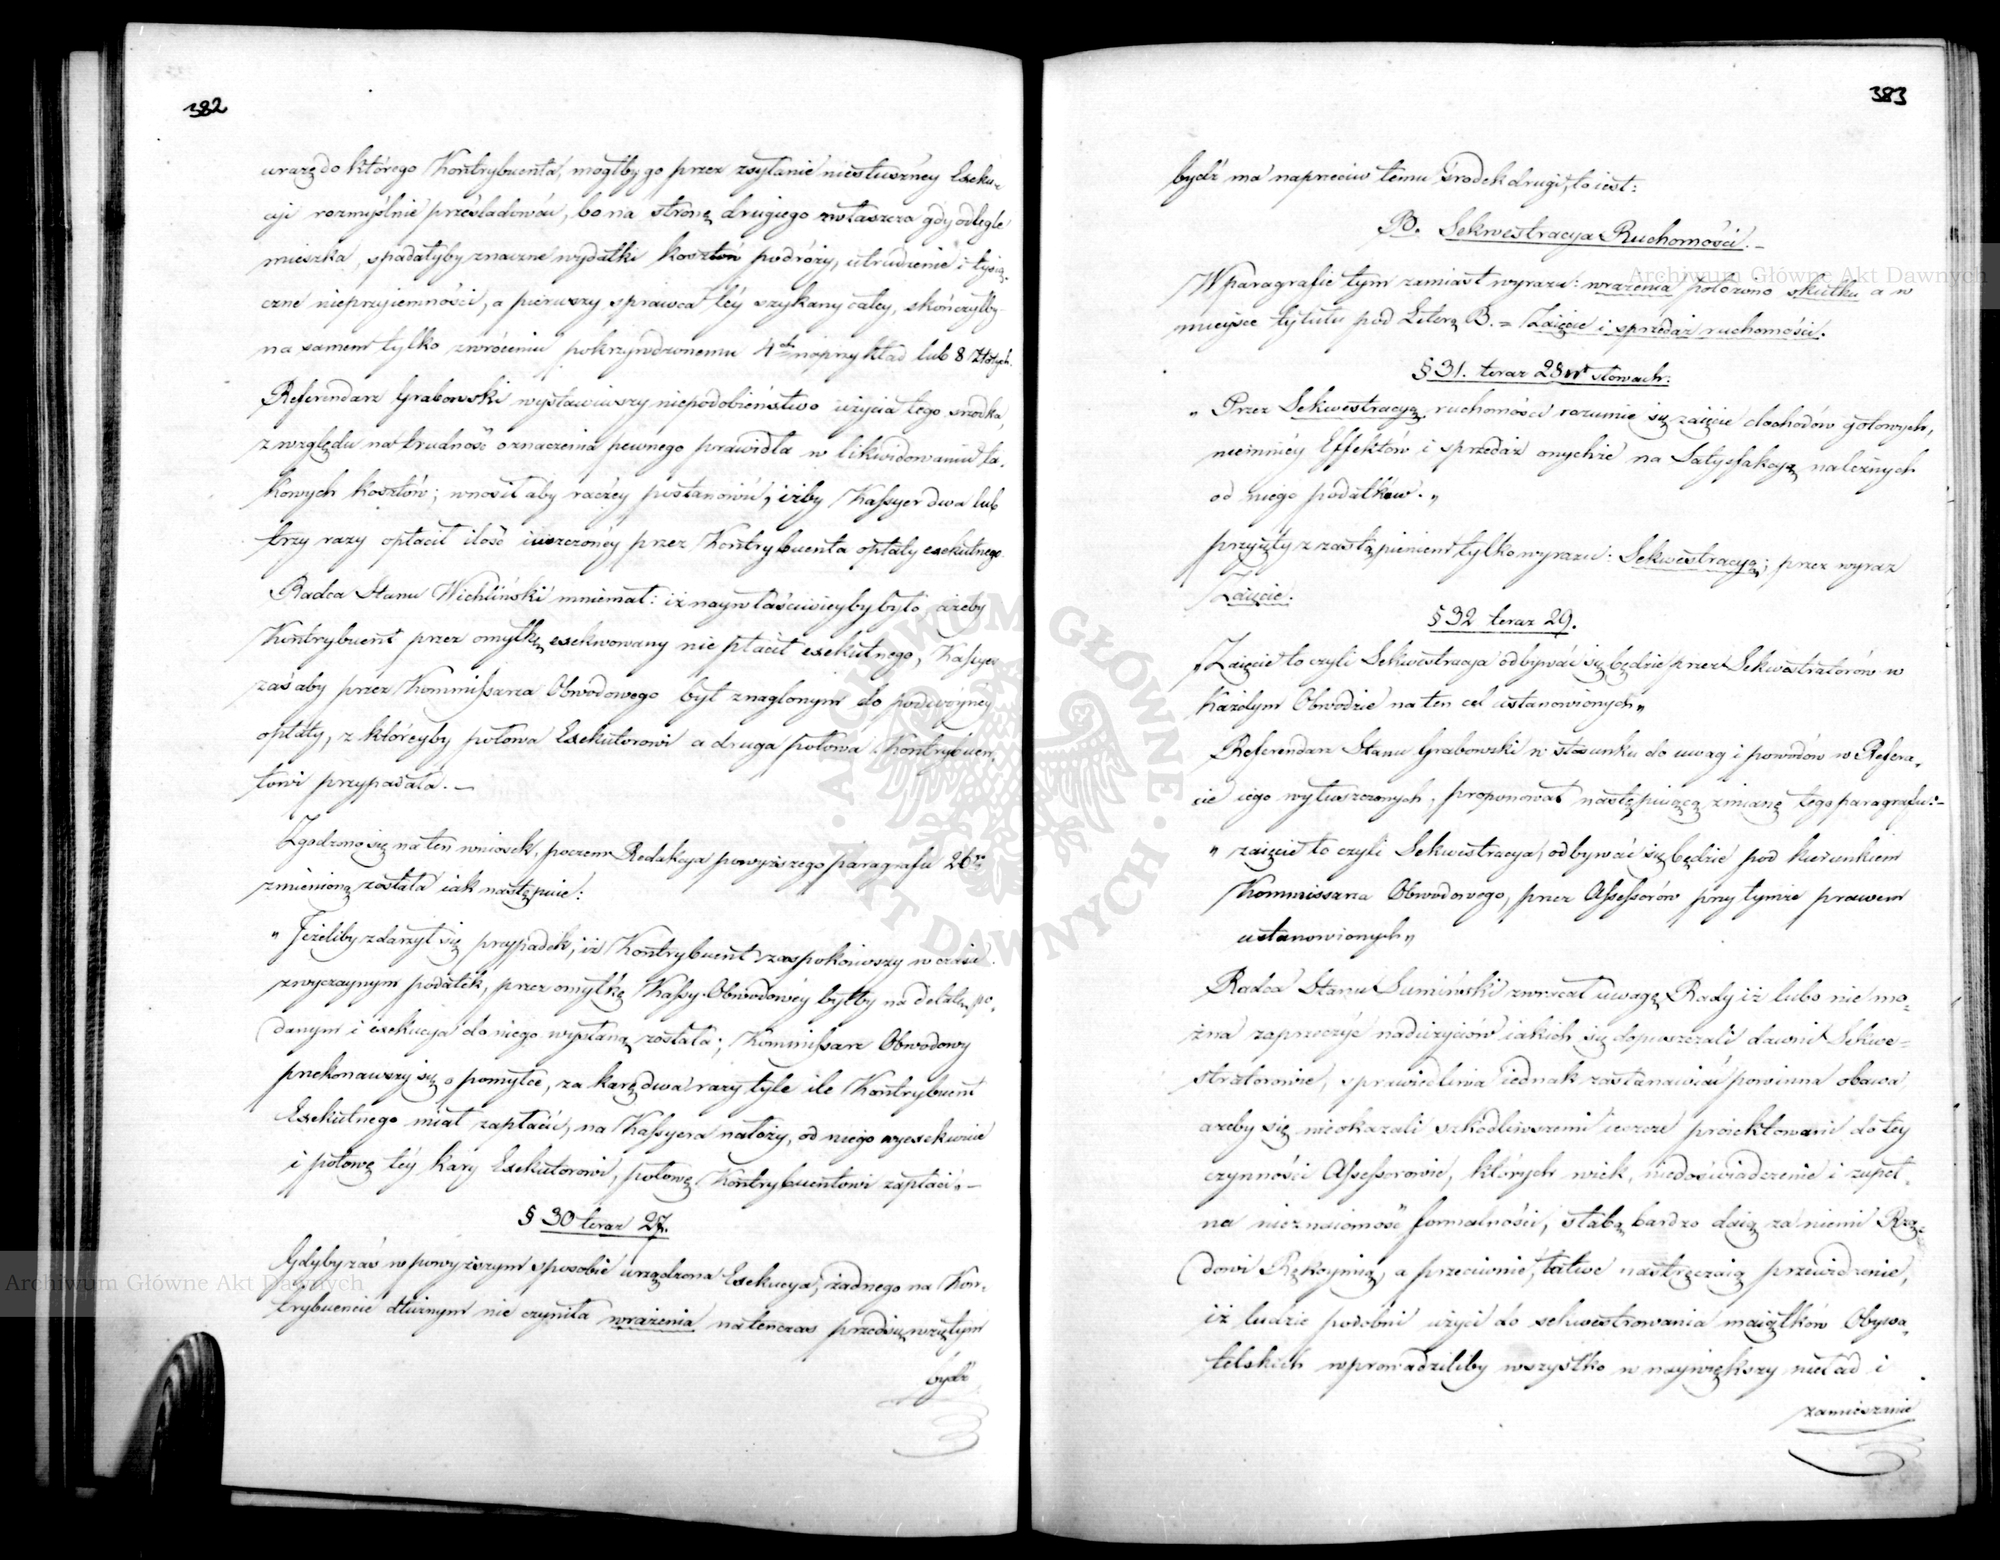 382
urazę do którego Kontrybuenta, mogłby go przez zsyłanie niesłuszney Exeku-
cyi rozmyślnie prześladować, bo na stronę drugiego zwłaszcza gdy odlegle
mieszka, spadałyby znaczne wydatki kosztów podróży, utrudzenie i tysią-
czne nieprzyiemności, a pierwszy sprawca téy szykany całey, skończyłby
na samem tylko zwróceniu pokrzywdzonemu 4ch naprzykład lub 8 Złotych.
Referendarz Grabowski wystawiwszy niepodobieństwo użycia tego srodka,
z względu na trudność oznaczenia pewnego prawidła w likwidowaniu ta-
kowych kosztów; wnosił aby raczéy postanowić, iżby Kassyer dwa lub
trzy razy opłacił ilość uiszczonéy przez Kontrybuenta opłaty exekutnego.
Radca Stanu Wichliński mniemał: iż naywłaściwieyby było ażeby
Kontrybuent przez omyłkę exekwowany nie płacił exekutnego, Kassyer
zaś aby przez Kommissarza Obwodowego był znaglonym do podwóyney
opłaty, z któreyby połowa Exekutorowi a druga połowa Kontrybuen-
towi przypadała. —
Zgodzono się na ten wniosek, poczem Redakcya powyższego paragrafu 26go
zmienioną została iak następuie:
„ Jeżeliby zdarzył się przypadek, iż Kontrybuent zaspokoiwszy w czasie
zwyczaynym podatek, przez omyłkę Kassy Obwodowéy byłby na detalu po-
danym i exekucya do niego wysłaną została; Kommissarz Obwodowy
przekonawszy się o pomyłce, za karę dwa razy tyle ile Kontrybuent
Exekutnego miał zapłacić, na Kassyera nałoży, od niego wyexekwuie
i połowę téy kary Exekutorowi, połowę Kontrybuentowi zapłaci. „ —
§ 30 teraz 27.
Gdyby zaś w powyższym sposobie urządzona Exekucya, żadnego na Kon-
trybuencie dłużnym nie czyniła wrażenia natenczas przedsięwziętym
bydź
383
bydź ma naprzeciw temu środek drugi, to iest:
B. Sekwestracya Ruchomości. —
W paragrafie tym zamiast wyrazu: wrażenia położono skutku a w
mieysce tytułu pod Literą B. = Zaięcie i sprzedaż ruchomości.
§ 31. teraz 28 w słowach:
„ Przez Sekwestracyą ruchomości rozumie się zaięcie dochodów gotowych,
niemniéy Effektów i sprzedaż onychże na Satysfakcyą należnych
od niego podatków. „
przyięty z zastąpieniem tylko wyrazu: Sekwestracyą; przez wyraz
Zaięcie.
§ 32 teraz 29.
„ Zaięcie to czyli Sekwestracya odbywać się będzie przez Sekwestratorów w
każdym Obwodzie na ten cel ustanowionych „
Referendarz Stanu Grabowski w stosunku do uwag i powodów w Refera-
cie iego wyłuszczonych, proponował następuiącą zmianę tego paragrafu: —
„ zaięcie to czyli Sekwestracya, odbywać się będzie pod kierunkiem
Kommissarza Obwodowego, przez Assessorów przy tymże prawem
ustanowionych „
Radca Stanu Sumiński zwracał uwagę Rady iż lubo nie mo-
żna zaprzeczyć nadużyciów iakich się dopuszczali dawni Sekwe-
stratorowie, sprawiedliwa iednak zastanawiać powinna obawa
ażeby się nieokazali szkodliwszemi ieszcze proiektowani do téy
czynności Assessorowie, których wiek, niedoświadczenie i zupeł-
na nieznaiomość formalności, słabą bardzo daią za niemi Rzą-
dowi Rękoymią, a przeciwnie, łatwe nastręczaią przewidzenie,
iż ludzie podobni użyci do sekwestrowania maiątków Obywa-
telskich wprowadziliby wszystko w naywiększy nieład i
zamieszanie
Archiwum Główne Akt Dawnych
Archiwum Główne Akt Dawnych
ARCHIWUM GŁÓWNE · AKT DAWNYCH ·